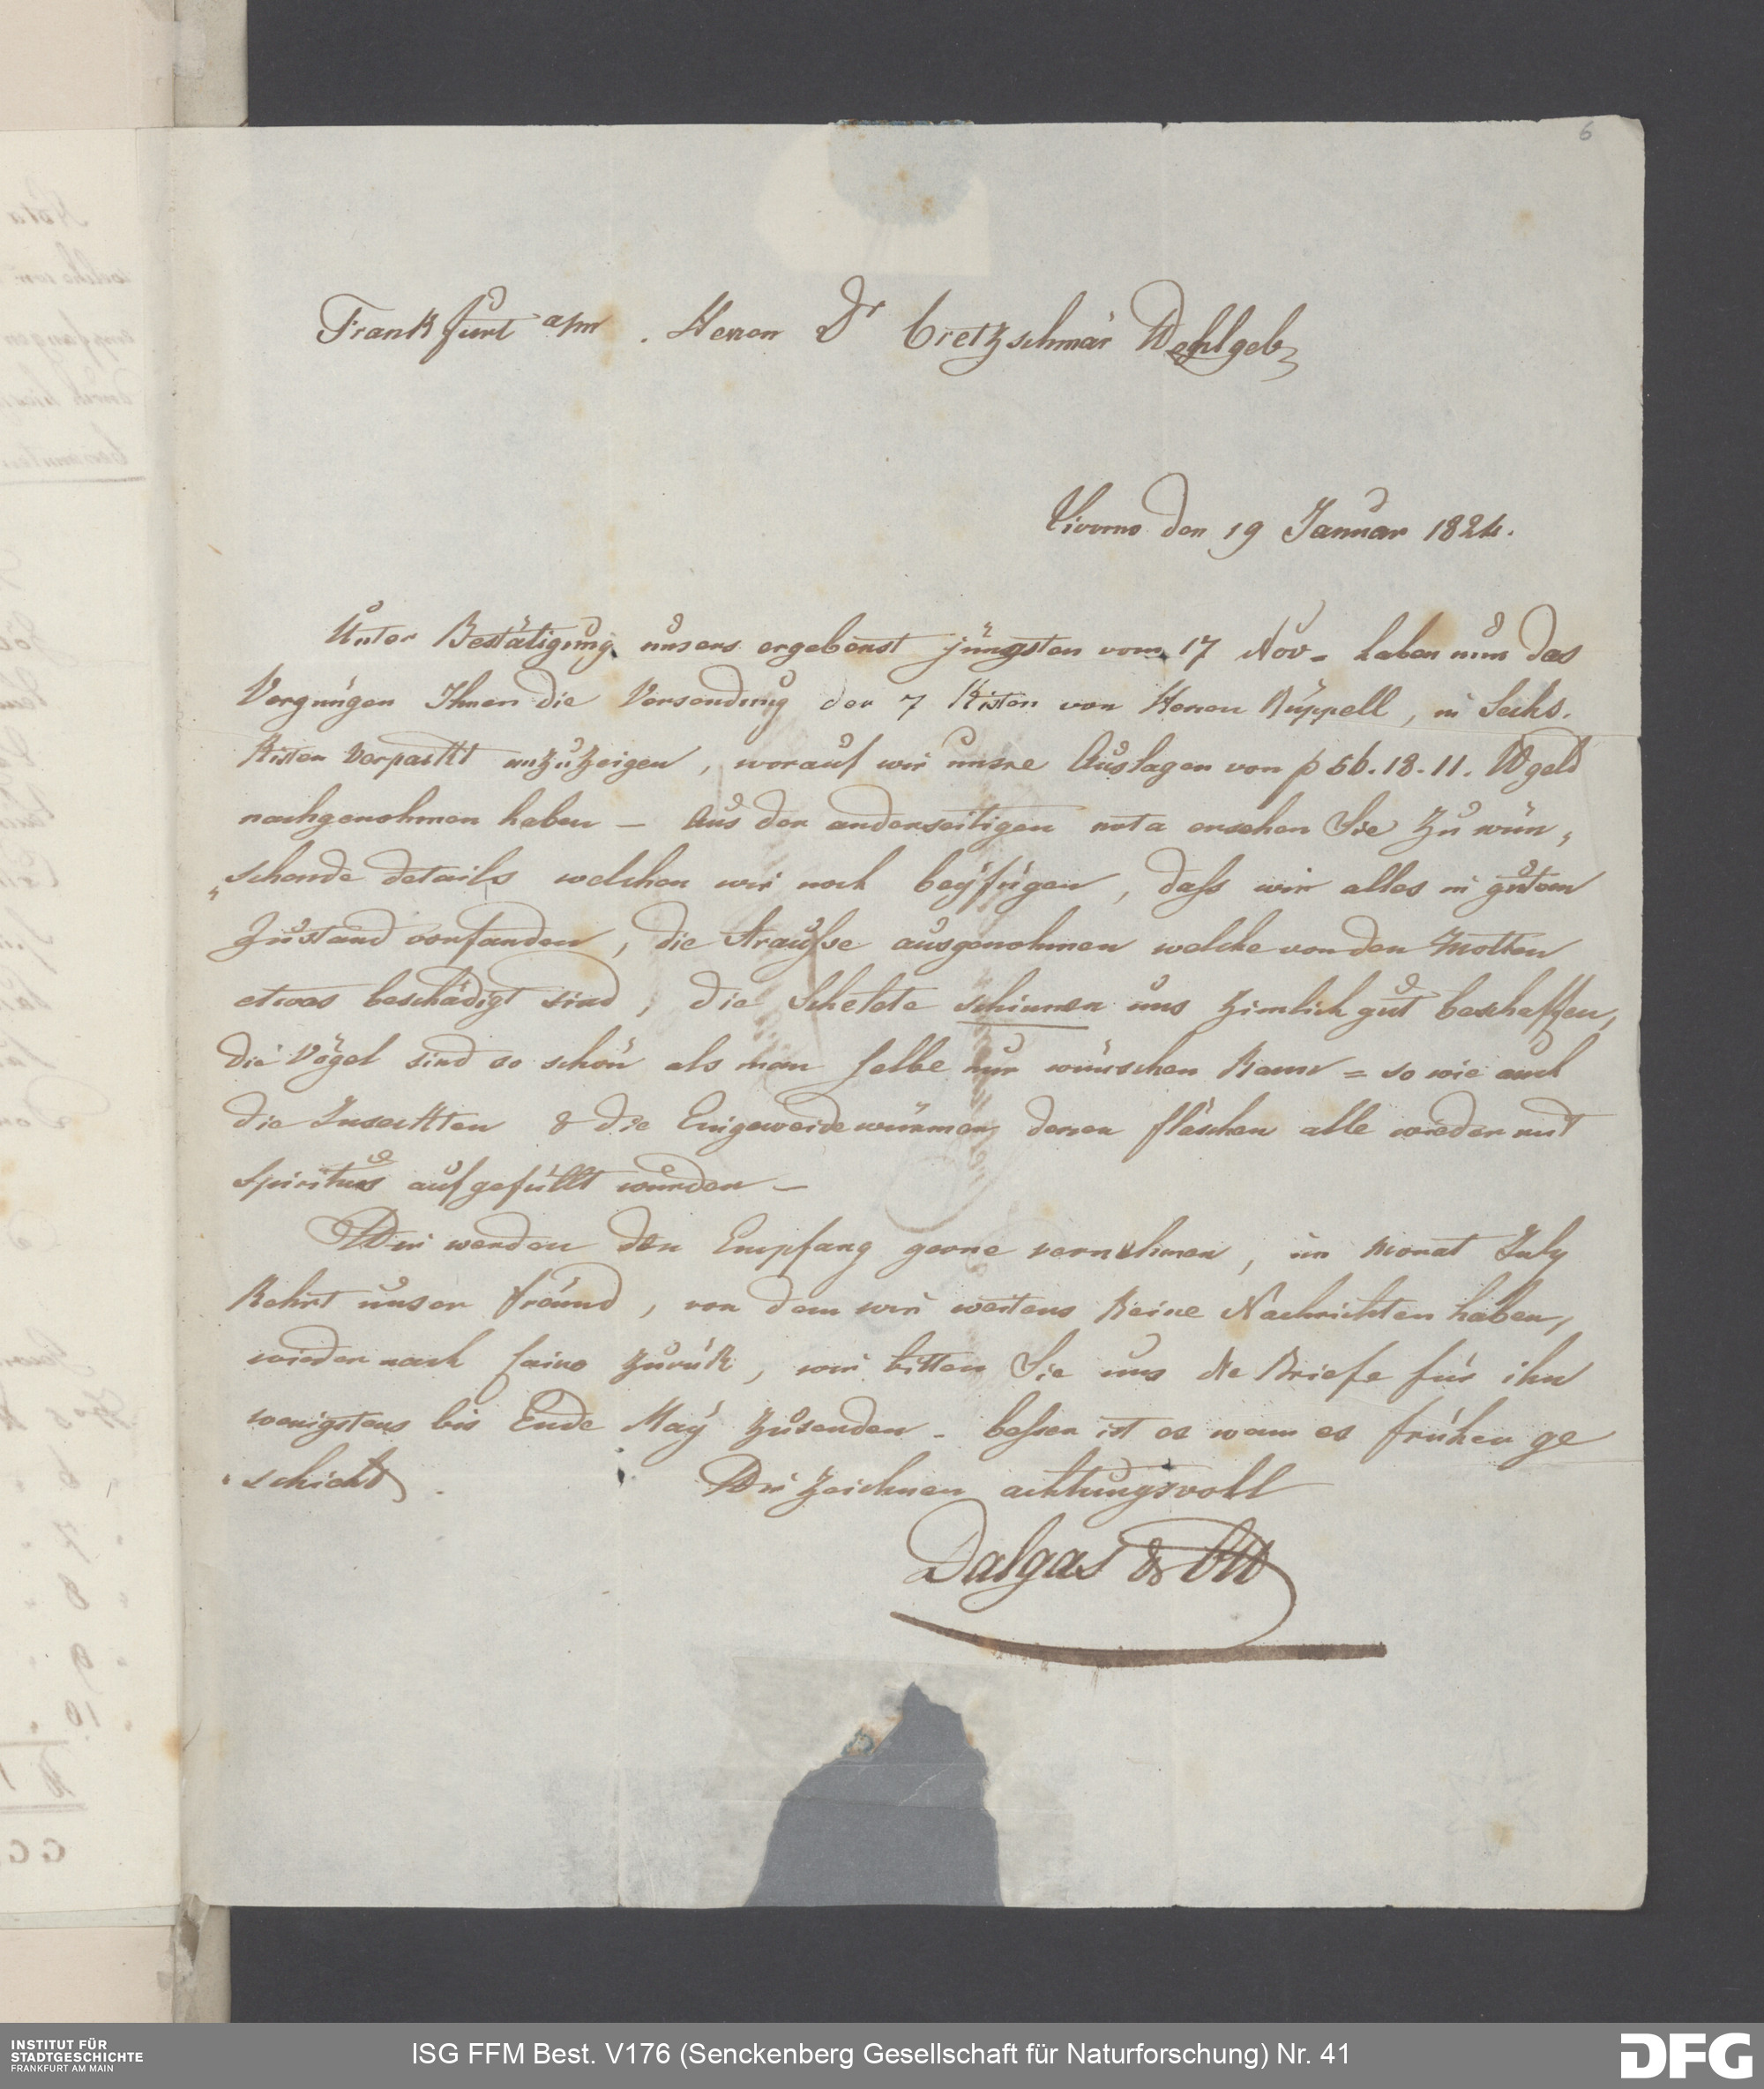 6
Frankfurt a/m . Herren Dr Cretzschmär Wohlgeb
Livorno den 19 Januar 1824.
Unter Bestätigung unsers ergebenst jüngsten vom 17 Nov = haben nun das
Vergnügen Ihnen die Versendung der 7 Kisten von Herren Rüppell, in Sechs.
Kisten verpackt anzuzeigen, worauf wir unsre Auslagen von p 56.18.11. Wgeld
nachgenohmen haben – Aus der anderseitigen nota ersehen Sie zu wün„
„schende details welchen wir noch beÿfügen, dass wir alles in gutem
Zustand vorfanden, die Strausse ausgenohmen welche von den Motten
etwas beschädigt sind, die Skelete schienen uns zimlich gut beschaffen,
die Vögel sind so schön als man selbe nur wünschen kann = so wie auch
die Insectten & die Eingeweidewürmer deren fläschen alle wieder mit
Spiritus aufgefüllt wurden –
Wir werden den Empfang gerne vernehmen, im Monat July
Kehrt unser fräund, von dem wir weitens keine Nachrichten haben,
wieder nach Cairo zurük, wir bitten Sie uns die Briefe für ihn
wenigstens bis Ende Maÿ zusenden – besser ist es wann es früher ge
„schieht.
Wir zeichnen achtungsvoll
Dalgas & Ott
INSTITUT FÜR
STADTGESCHICHTE
FRANKFURT AM MAIN
ISG FFM Best. V176 (Senckenberg Gesellschaft für Naturforschung) Nr. 41
DFG